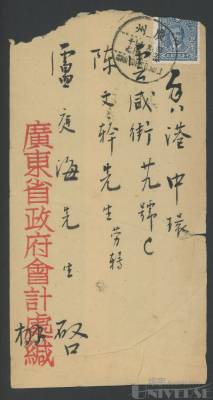 香港中環
雲咸街廿九號C
陳文幹先生勞轉
盧庚海先生啟
廣東省政府會計處緘
廣州
UNIVERSE